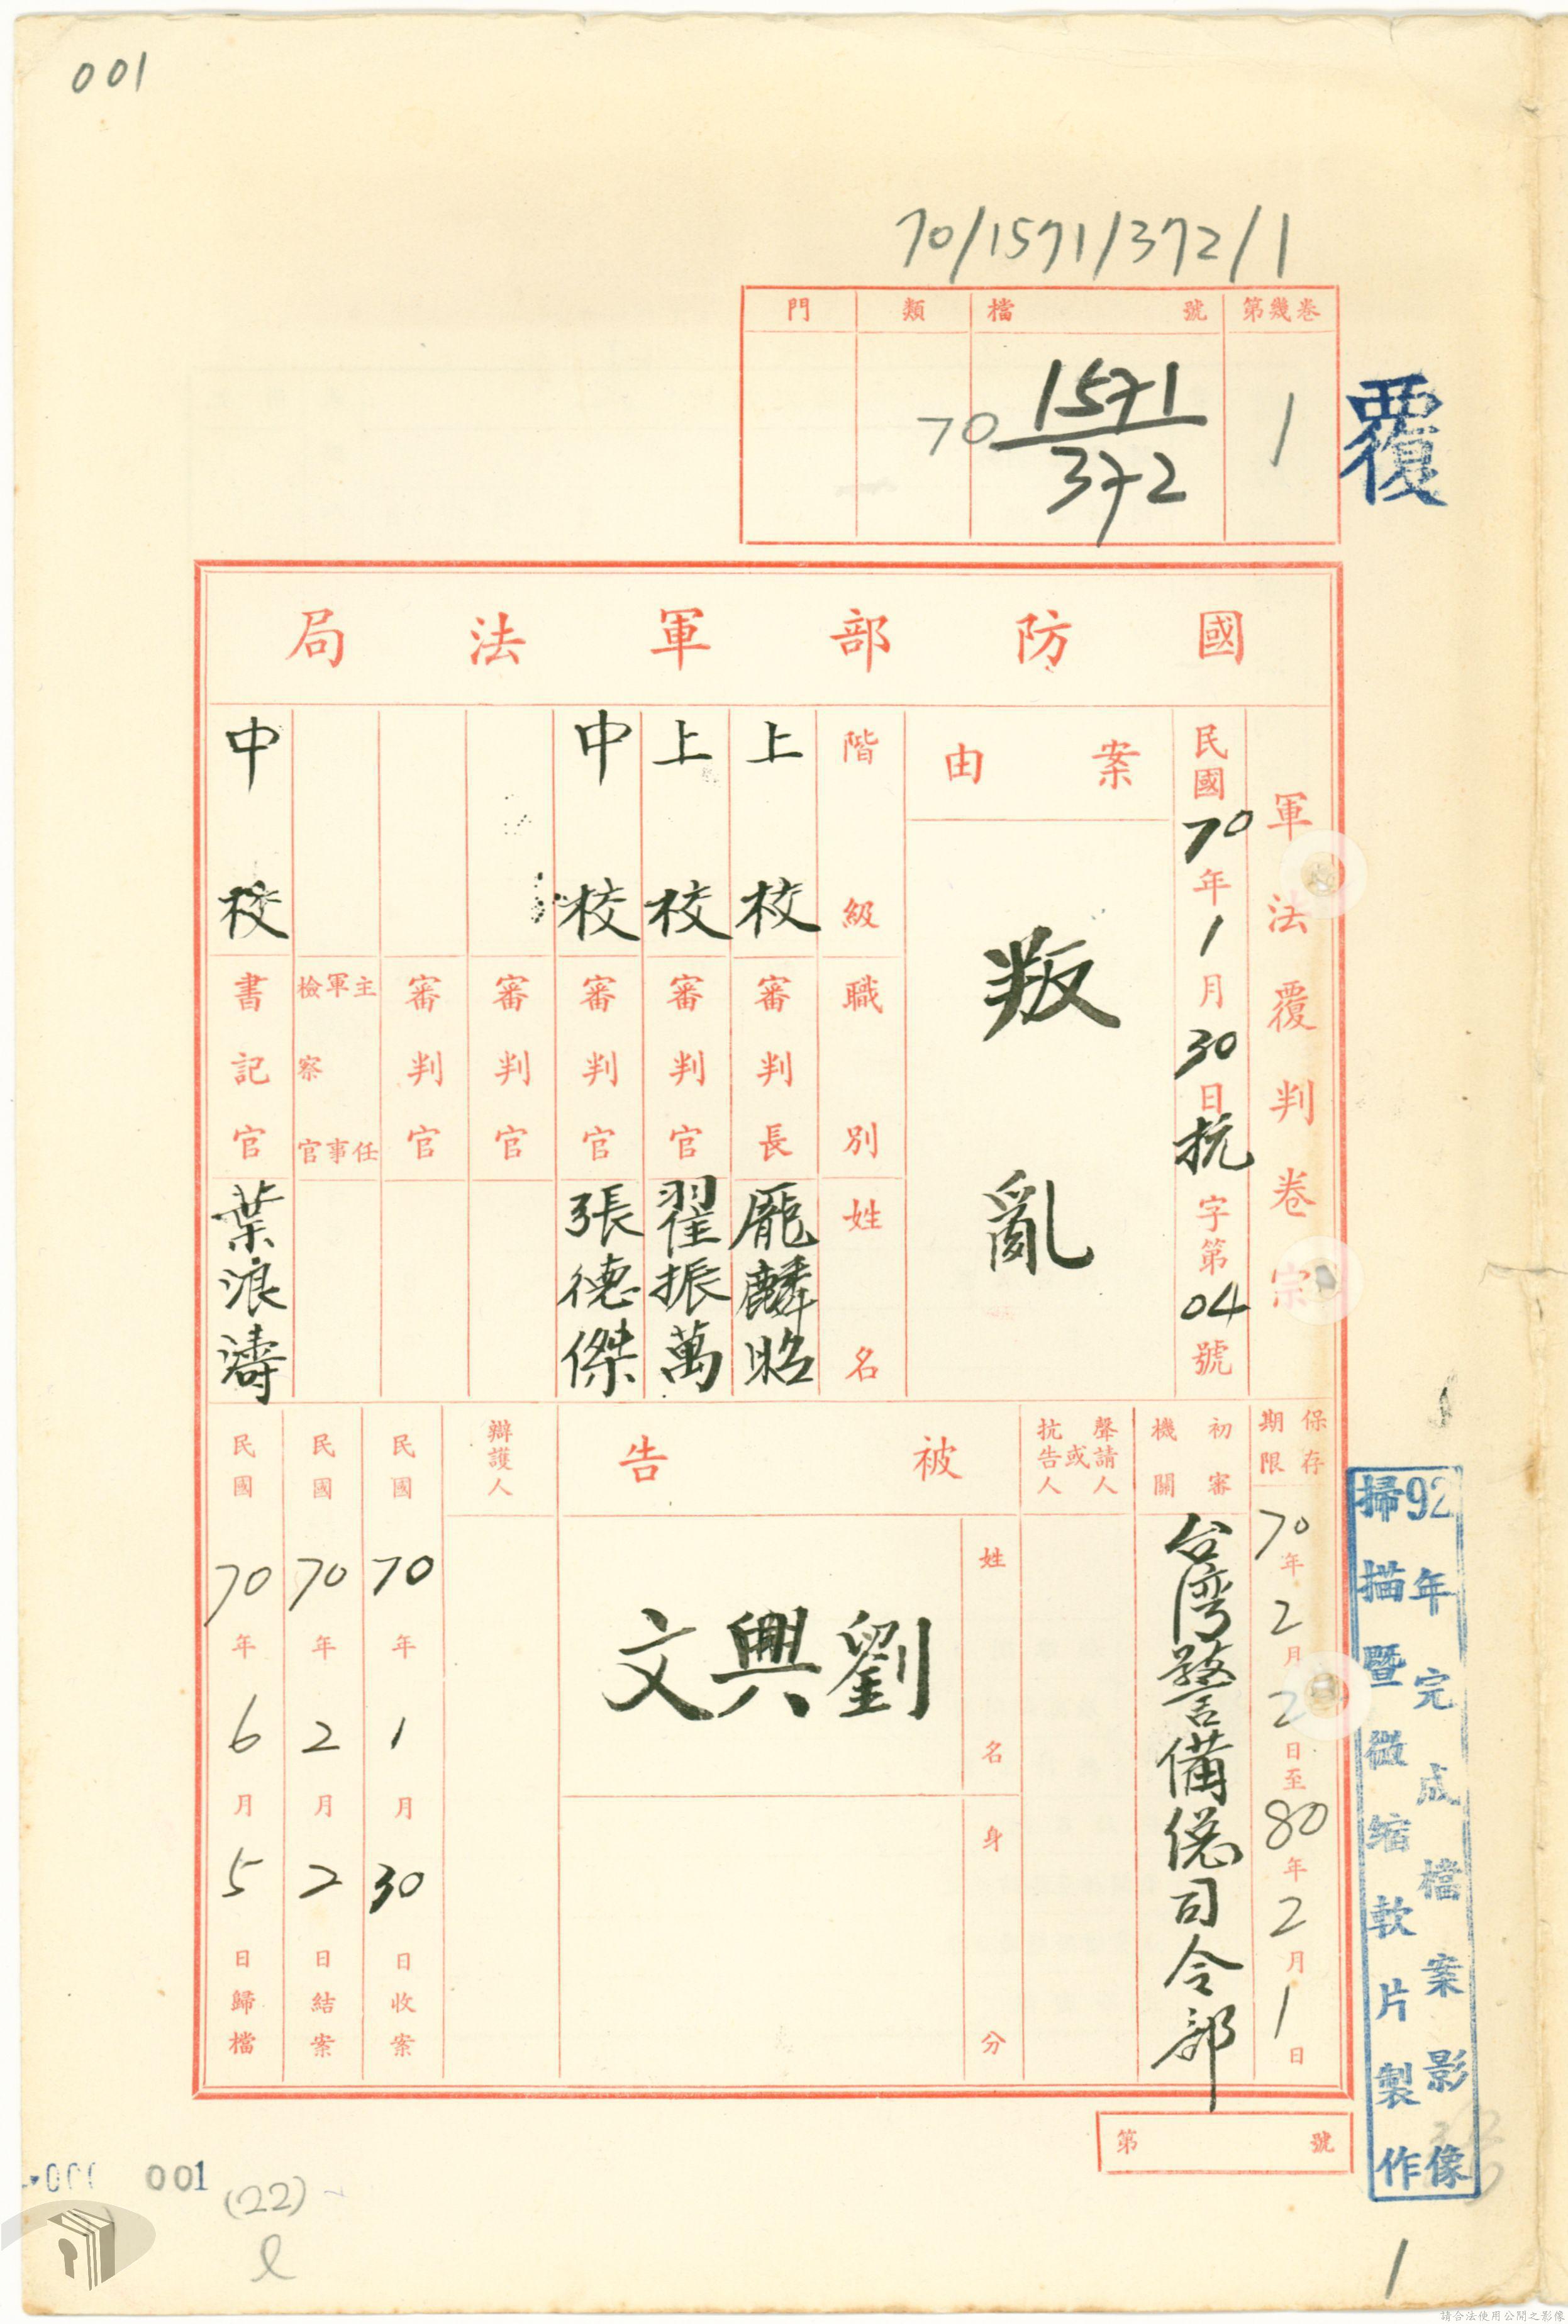 001
70/1571/372/1
第幾卷 1
檔號 70 1571/372
類
門
覆
國防部軍法局
軍法覆判卷宗
民國70年1月30日抗字第04號
案由
叛亂
階級 職別 姓名
上校 審判長 龎麟昭
上校 審判官 翟振萬
中校 審判官 張德傑
審判官
審判官
主任軍事檢察官
中校 書記官 葉浪濤
保存期限 70年2月2日至80年2月1日
初審機關 台湾警備總司令部
聲請人或抗告人
被告
姓名 劉興文
身分
辯護人
民國70年1月30日收案
民國70年2月2日結案
民國70年6月5日歸檔
第 號
92年完成檔案影像
掃描暨微縮軟片製作
001
(22)
1
請合法使用公開之影像